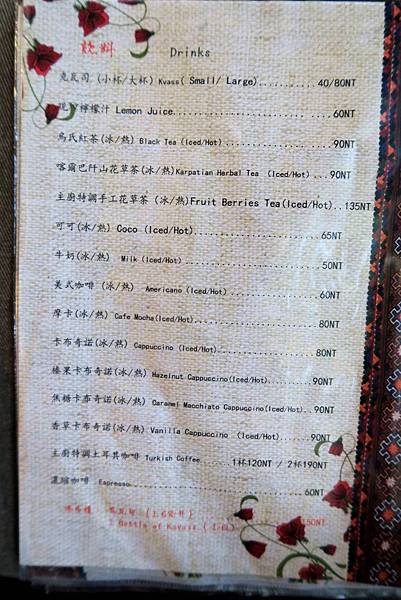 飲料 Drinks
克瓦司 (小杯/大杯) Kvass( Small/ Large)........... 40/80NT
現榨檸檬汁 Lemon Juice.................... .... ....60NT
烏氏紅茶(冰/熱) Black Tea (Iced/Hot)...................90NT
喀爾巴阡山花草茶(冰/熱)Karpatian Herbal Tea (Iced/Hot) ...90NT
主廚特調手工花草茶 (冰/熱)Fruit Berries Tea(Iced/Hot)..135NT
可可(冰/熱) Coco (Iced/Hot)......................65NT
牛奶(冰/熱) Milk (Iced/Hot) ........................50NT
美式咖啡 (冰/熱) Americano (Iced/Hot) ...............60NT
摩卡(冰/熱) Cafe Mocha(Iced/Hot)......................80NT
卡布奇諾(冰/熱) Cappuccino (Iced/Hot)..................80NT
榛果卡布奇諾(冰/熱) Hazelnut Cappuccino(Iced/Hot).......90NT
焦糖卡布奇諾(冰/熱) Caramel Macchiato Cappuccino(Iced/Hot)..90NT
香草卡布奇諾(冰/熱) Vanilla Cappuccino (Iced/Hot).......90NT
主廚特調土耳其咖啡 Turkish Coffee .......1杯120NT / 2杯190NT
濃縮咖啡 Espresso.......................................60NT
1 Bottle of Kavass 150NT